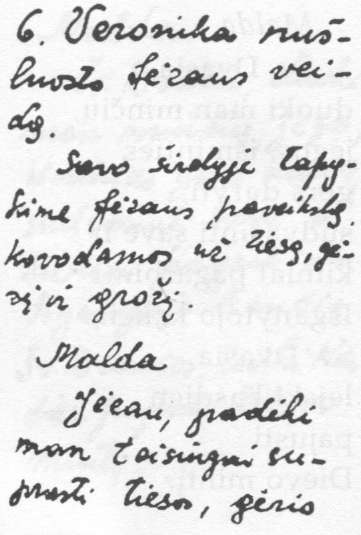 6. Veronika nuš-
luosto Jėzaus vei-
dą.
Savo širdyje tapy-
kime Jėzaus paveikslą,
kovodamos už tiesą, gė-
rį ir grožį.
Malda
Jėzau, padėki
man teisingai su-
prasti tiesos, gėrio